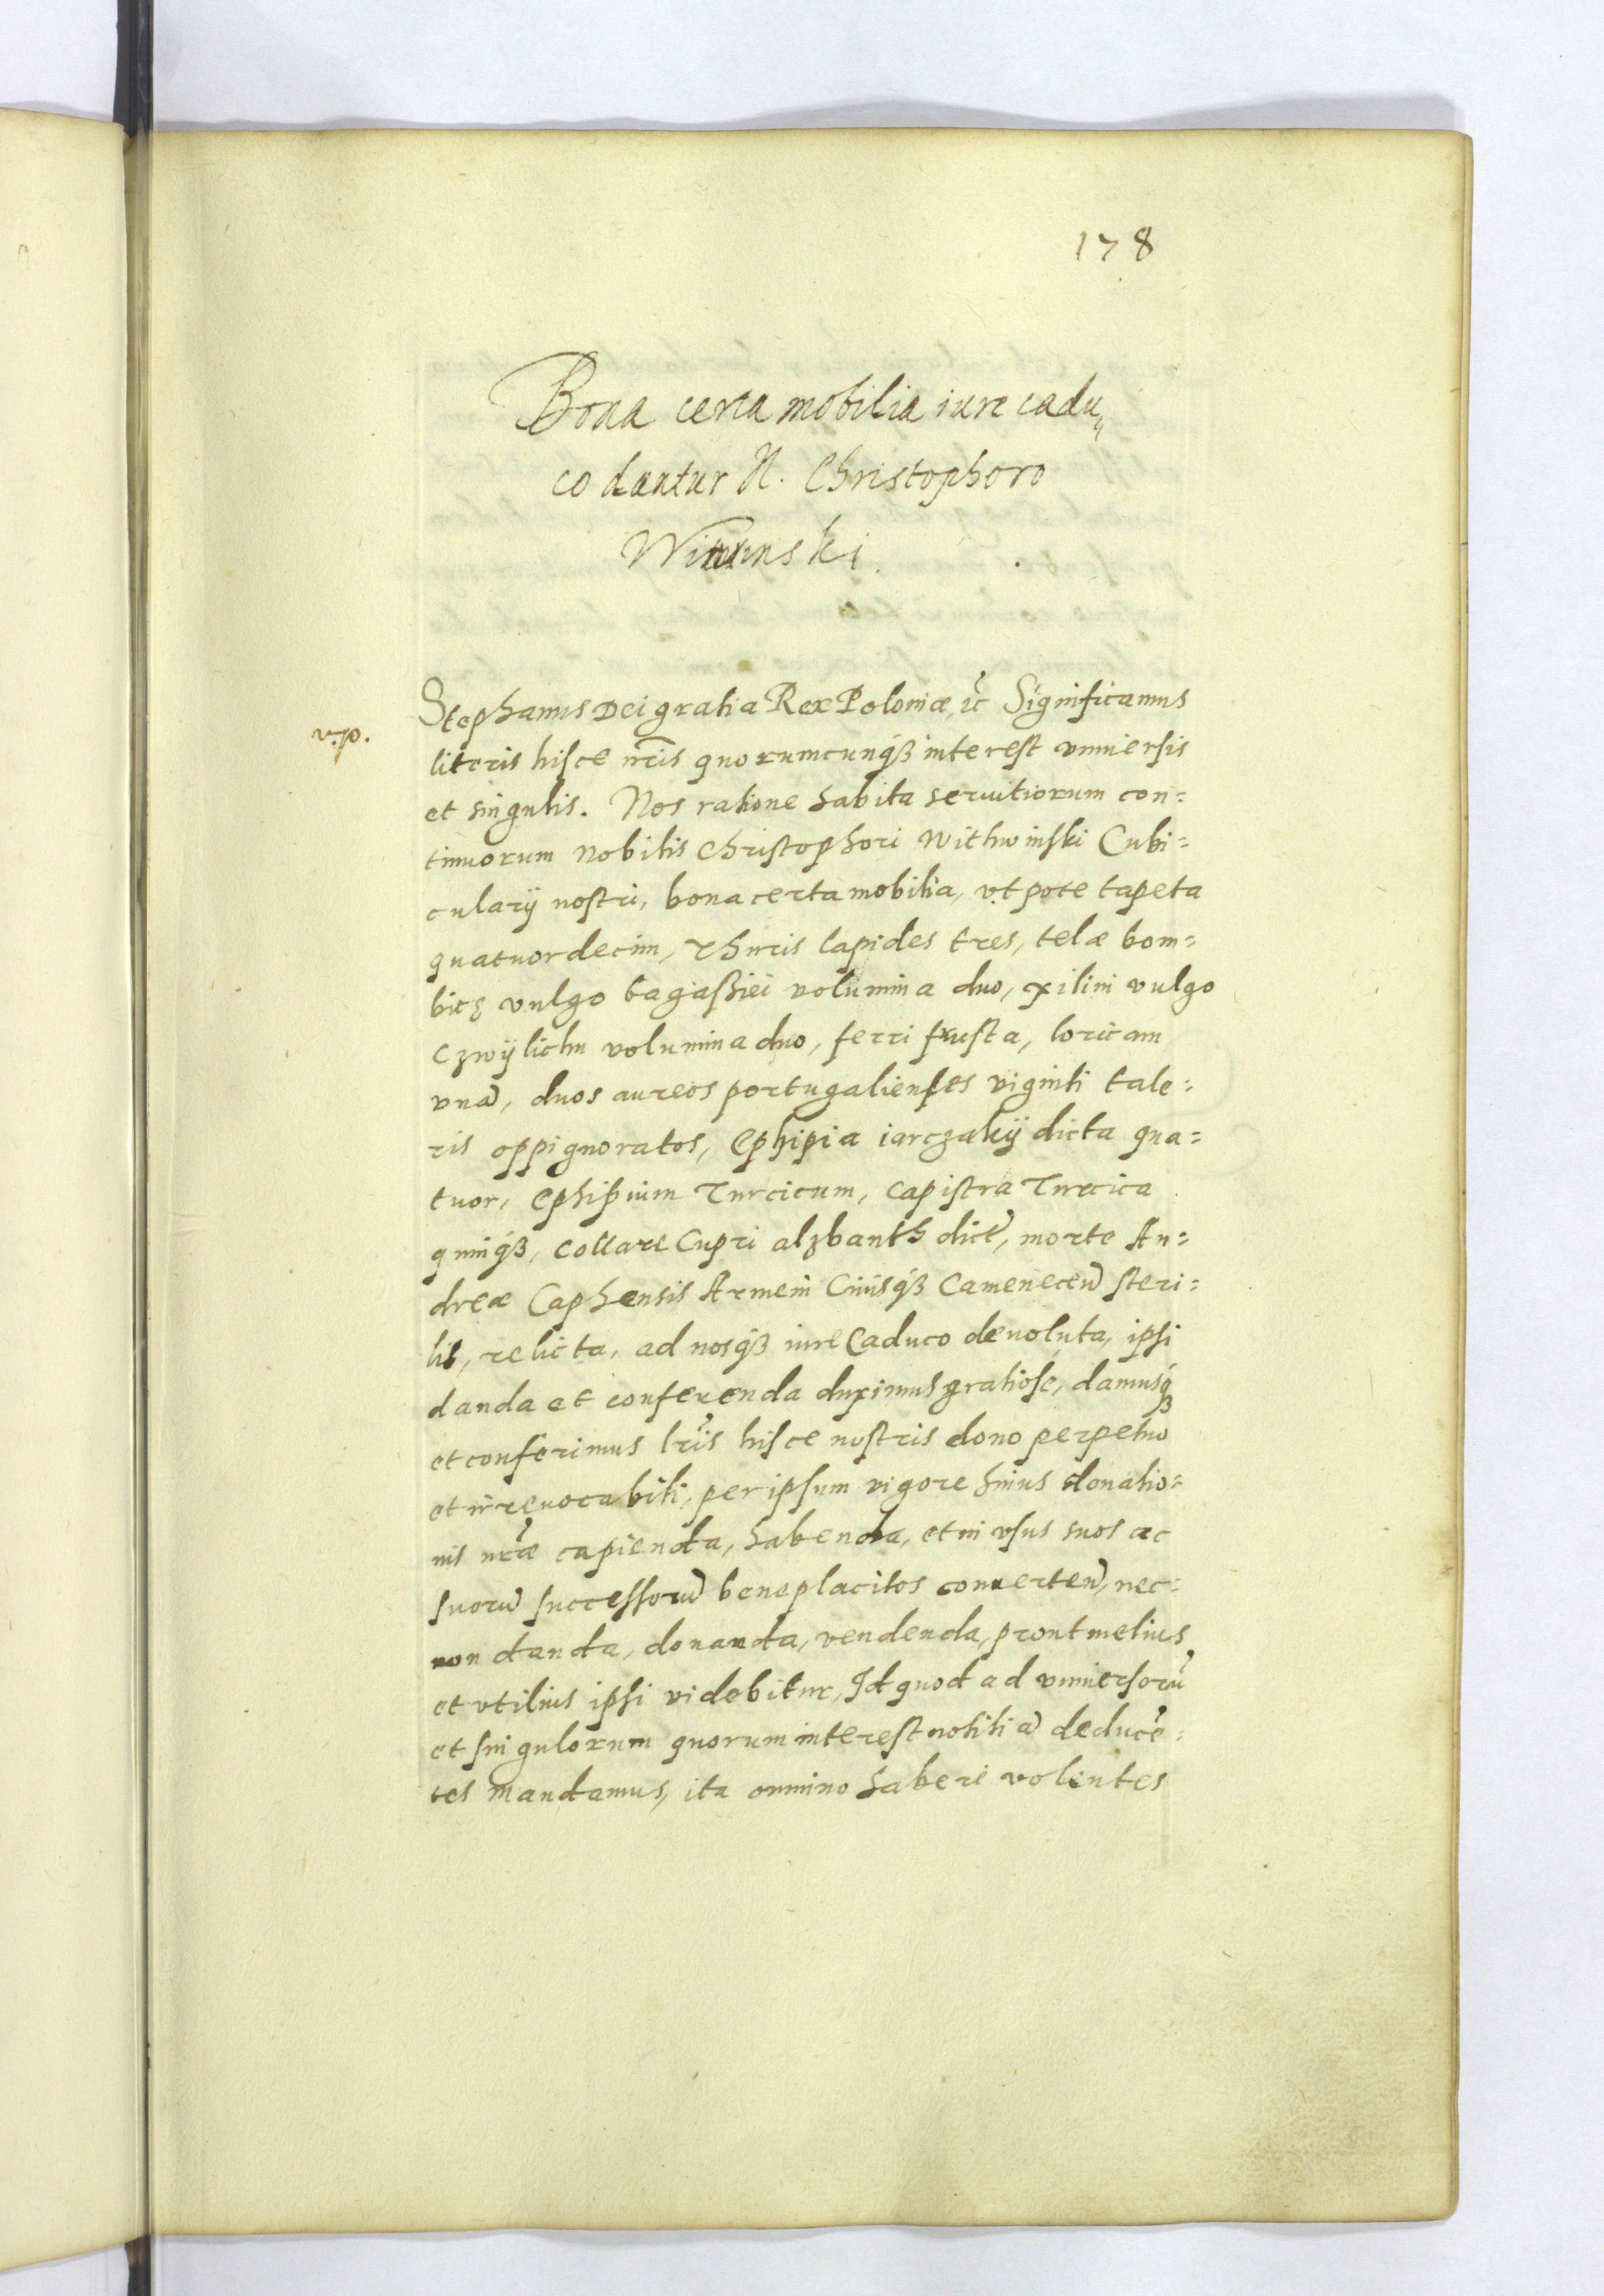 178
Bona certa mobilia iure cadu„
co dantur N. Christophoro
v.p.
Stephanus Dei gratia Rex Poloniæ, ꝛc̃ Significamus
literis hisce nr̃is quorumcunqꝫ interest vniuersis
et singulis. Nos ratione habita seruitiorum con=
tinuorum Nobilis Christophori Withwinski Cubi=
cularij nostri, bona certa mobilia, vt pote tapeta
quatuordecim, Thuris lapides tres, telæ bom=
bicę vulgo bagaßiei volumina duo, xilini vulgo
Czwÿlichu volumina duo, ferri frusta, loricam
vnã, duos aureos portugalienses viginti tale=
ris oppignoratos, Ephipia iarczakÿ dicta qua=
tuor, Ephipium Turcicum, Capistra Turcica
quinqꝫ, Collare Cupri alzbanth dict̃, morte An=
dreæ Caphensis Armeni Ciuisqꝫ Camenecen̄ steri=
lis, relicta, ad nosqꝫ iure Caduco deuoluta, ipsi
danda et conferenda duximus gratiose, damusqꝫ
et conferimus lr̃is hisce nostris dono perpetuo
et irreuocabili, per ipsum vigore huius donatio=
nis nr̃æ capienda, habenda, et in vsus suos ac
suorũ successorũ beneplacitos conuerten̄, nec=
non danda, donanda, vendenda, prout melius
et vtilius ipsi videbitur, Id quod ad vniuersorũ
et singulorum quorum interest notitiã deducẽ=
tes mandamus, ita omnino haberi volentes